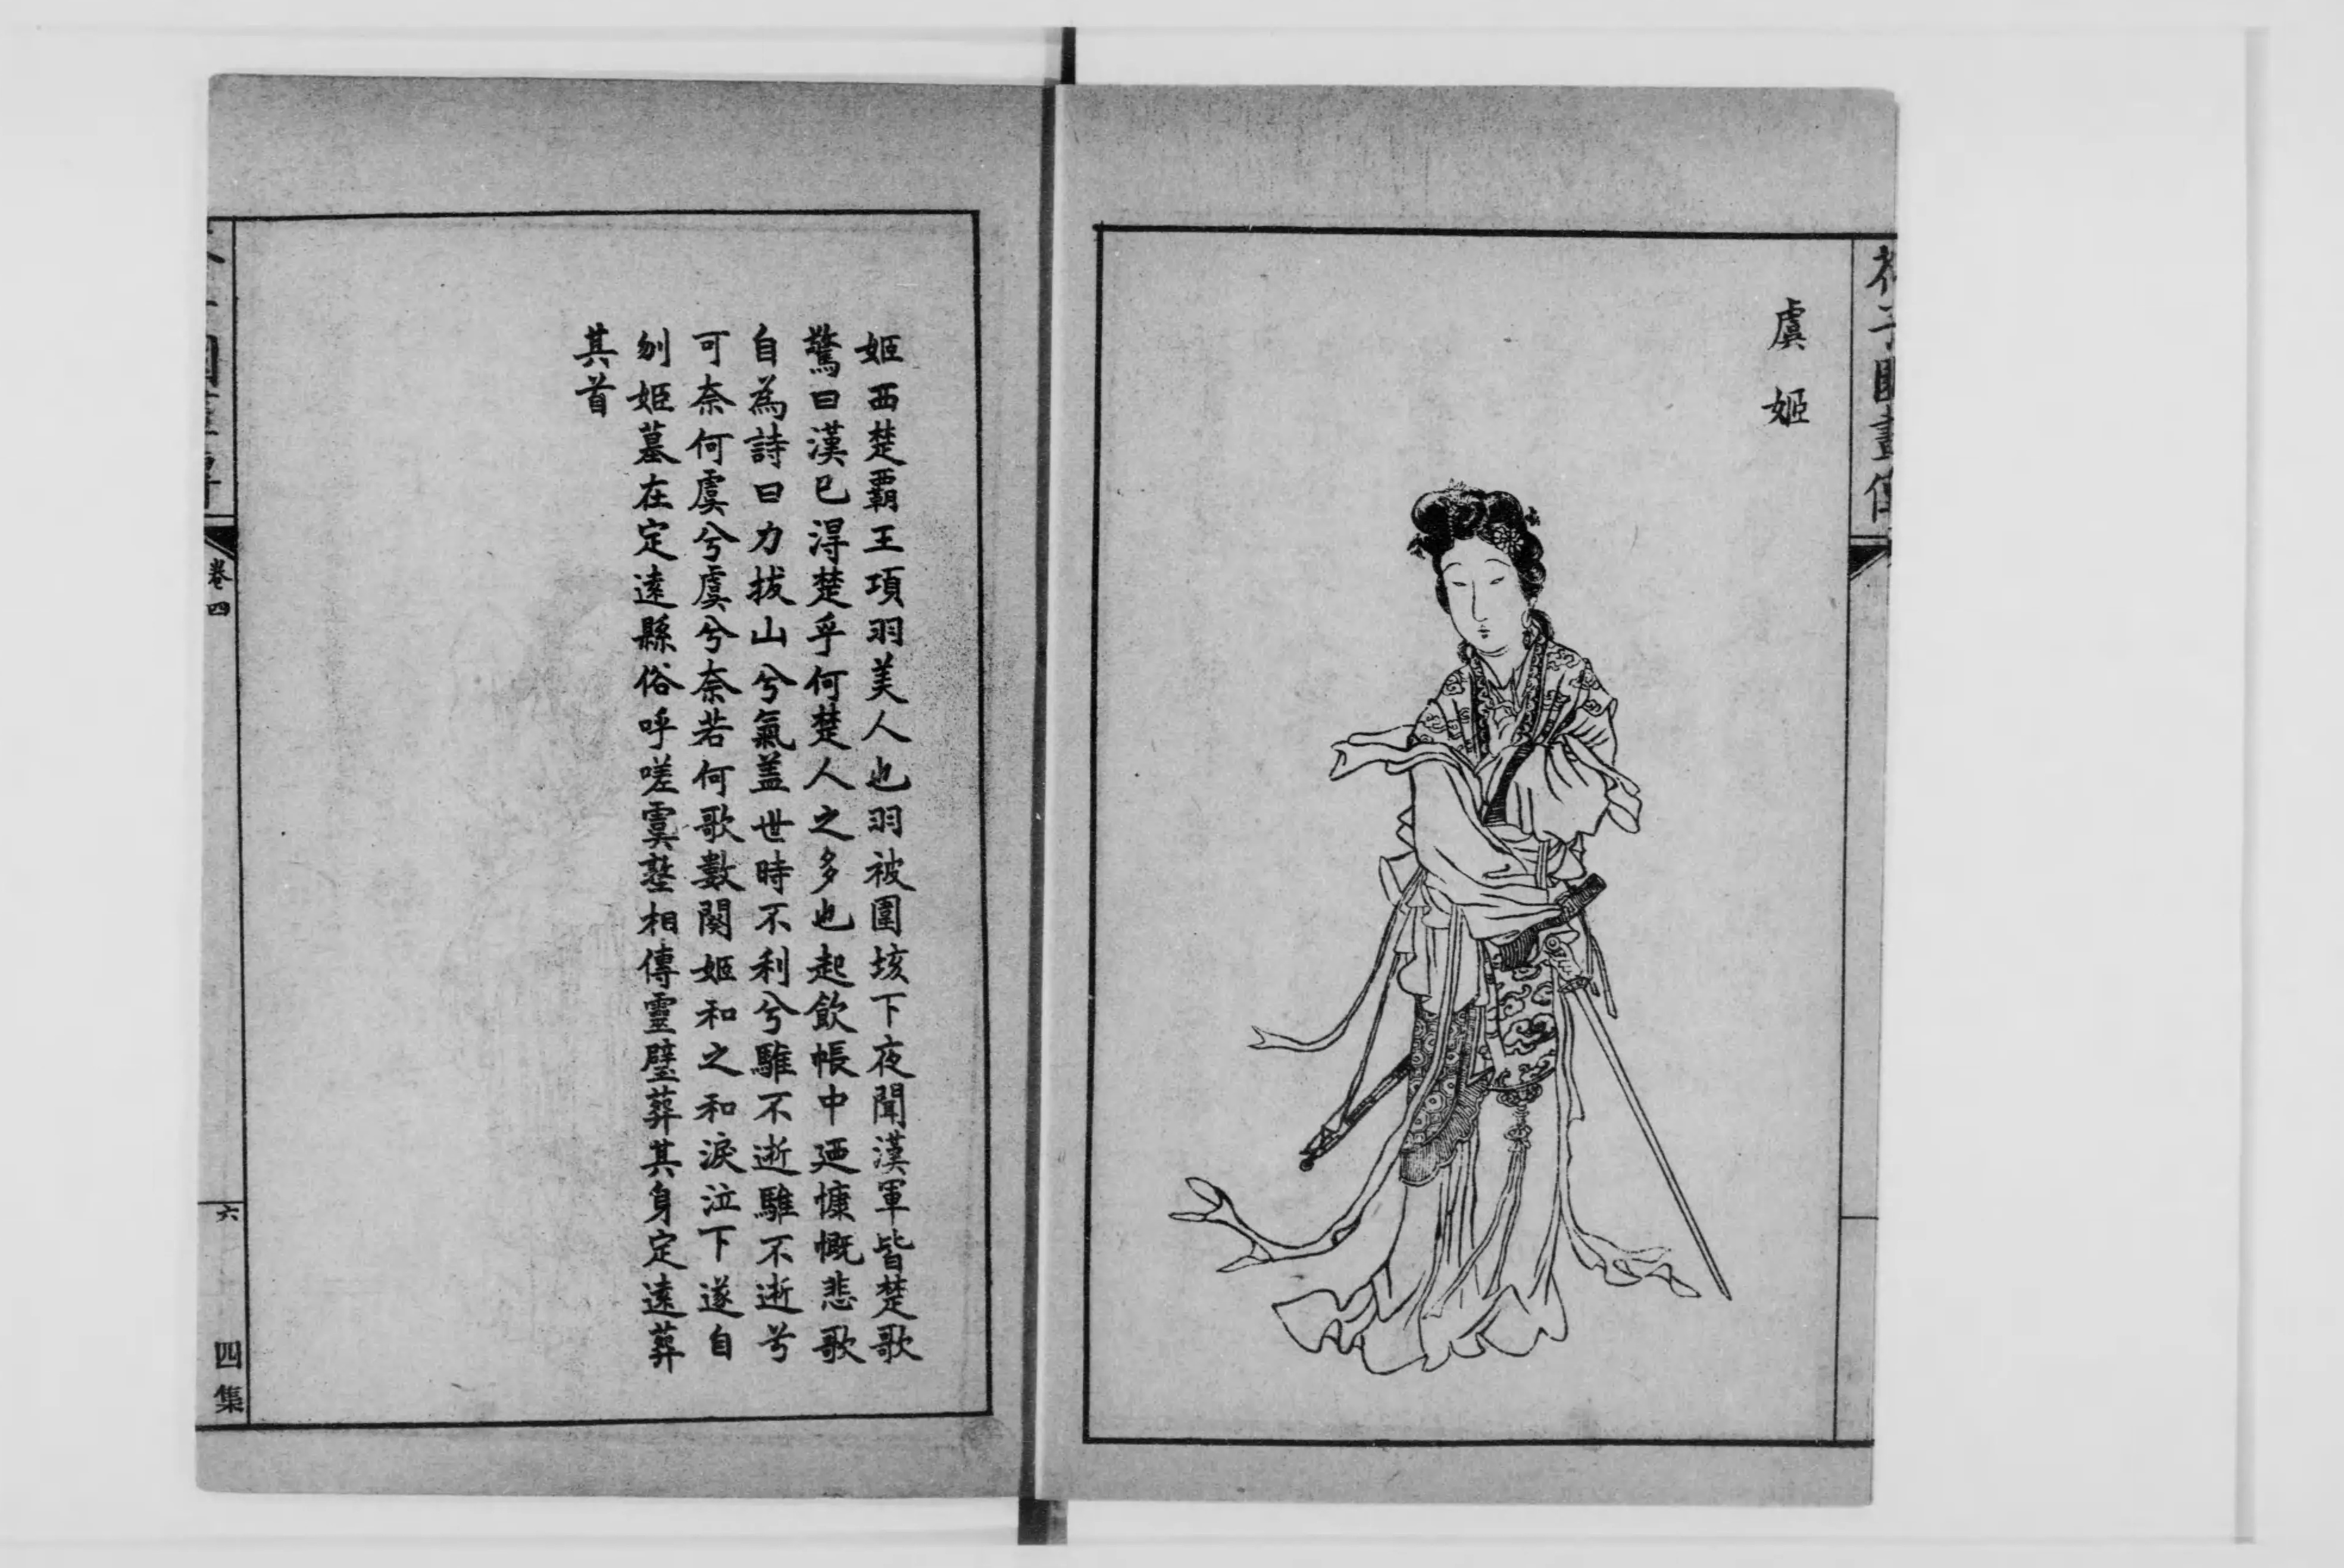 虞姬
姬西楚霸王項羽美人也羽被圍垓下夜聞漢軍皆楚歌
驚曰漢已淂楚乎何楚人之多也起飲帳中廼慷慨悲歌
自為詩曰力拔山兮氣蓋世時不利兮騅不逝騅不逝兮
可奈何虞兮虞兮奈若何歌數闋姬和之和淚泣下遂自
刎姬墓在定遠縣俗呼嗟虞墪相傳靈璧葬其身定遠葬
其首
卷四
六
四集